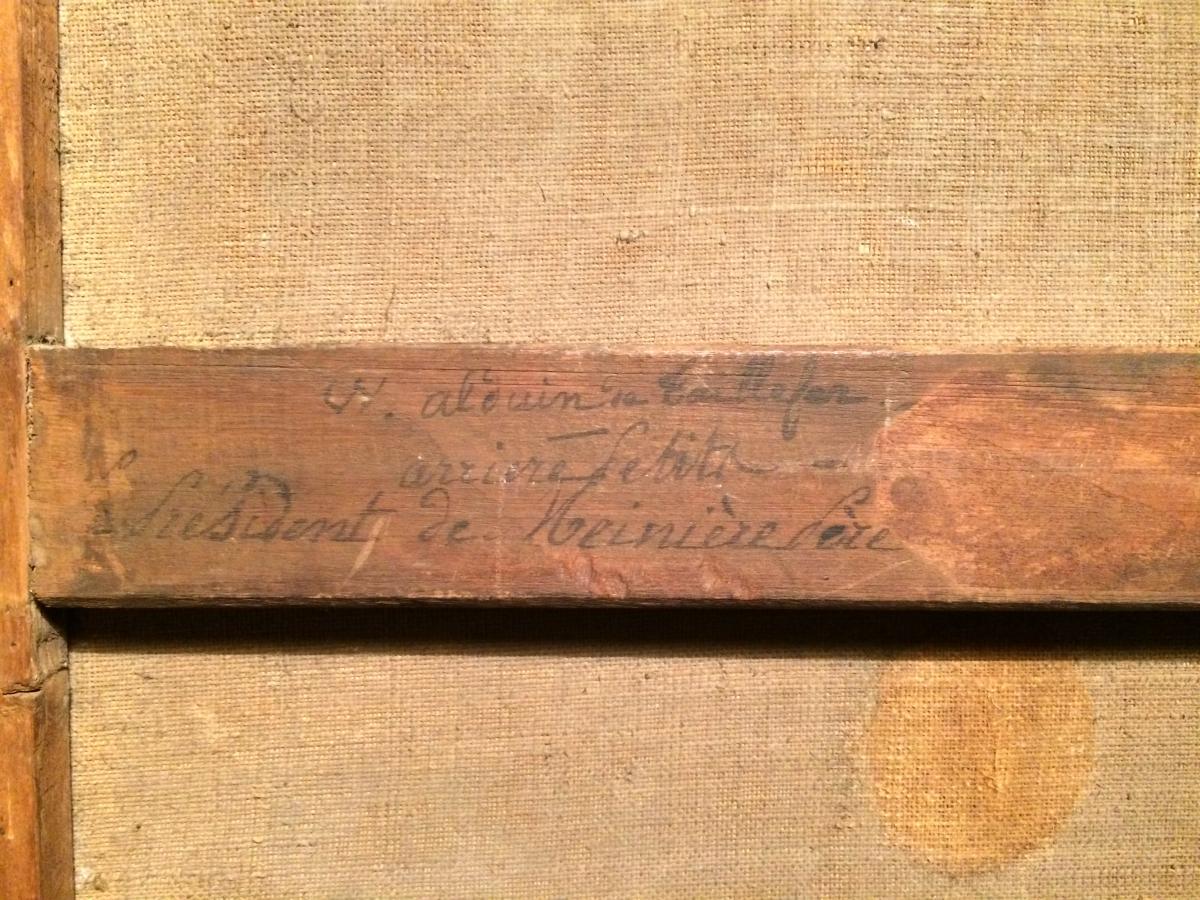 alduin de taillefer
arriere petit
President de Meinière père